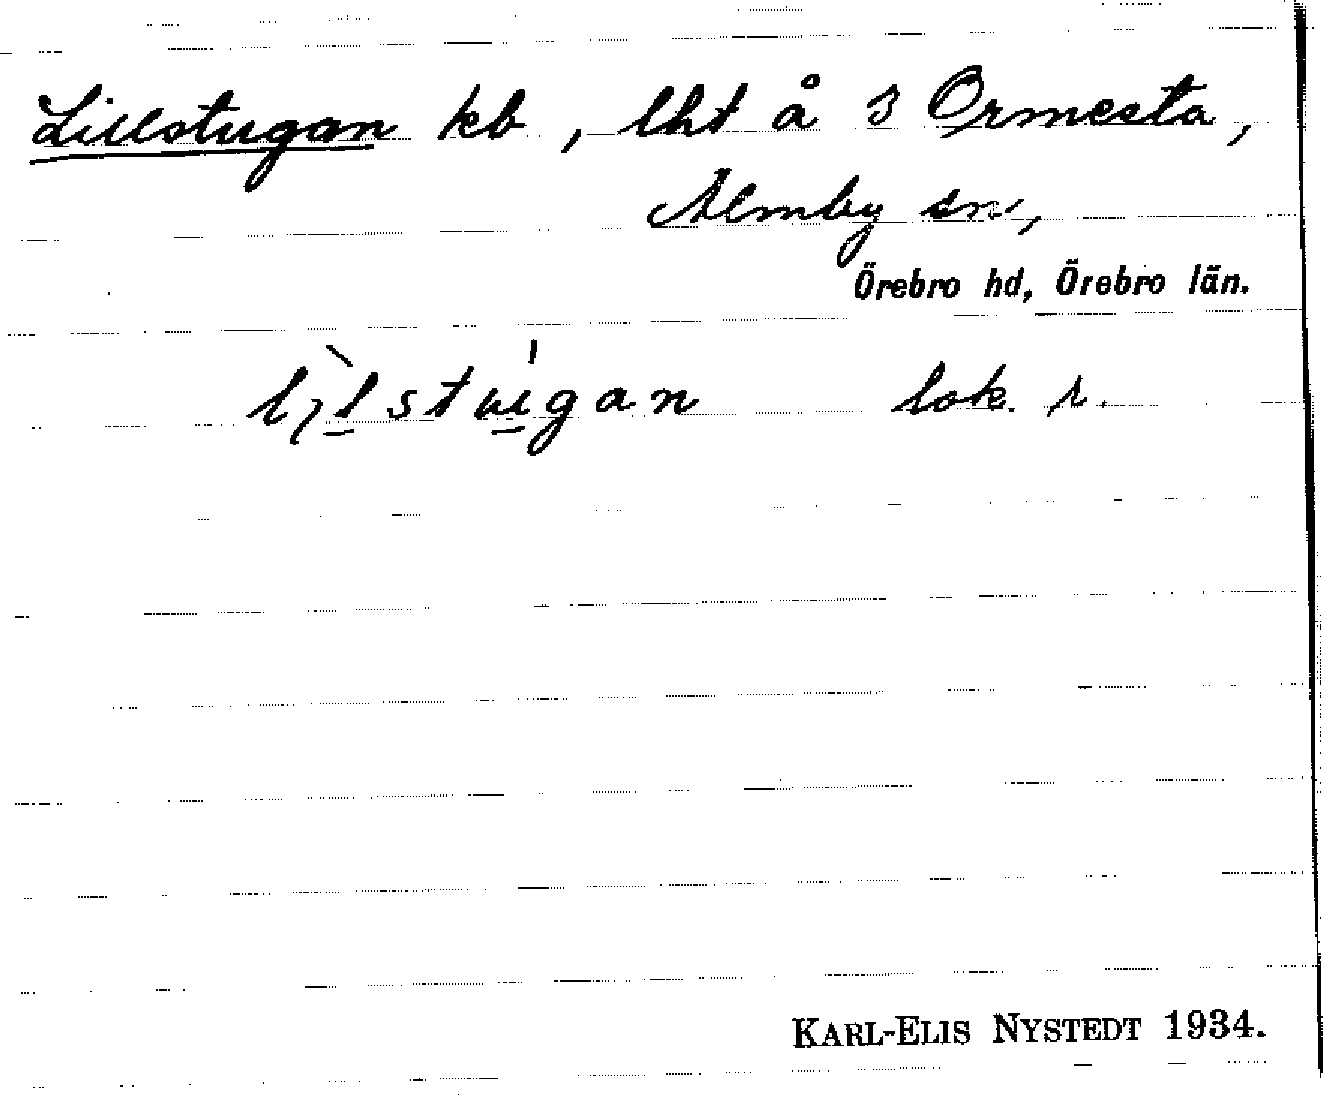 Lillstugan kb, lht å S Ormesta,
Almby sn,
Örebro hd, Örebro län.
lìlstúgan lok. r.
KARL-ELIS NYSTEDT 1934.